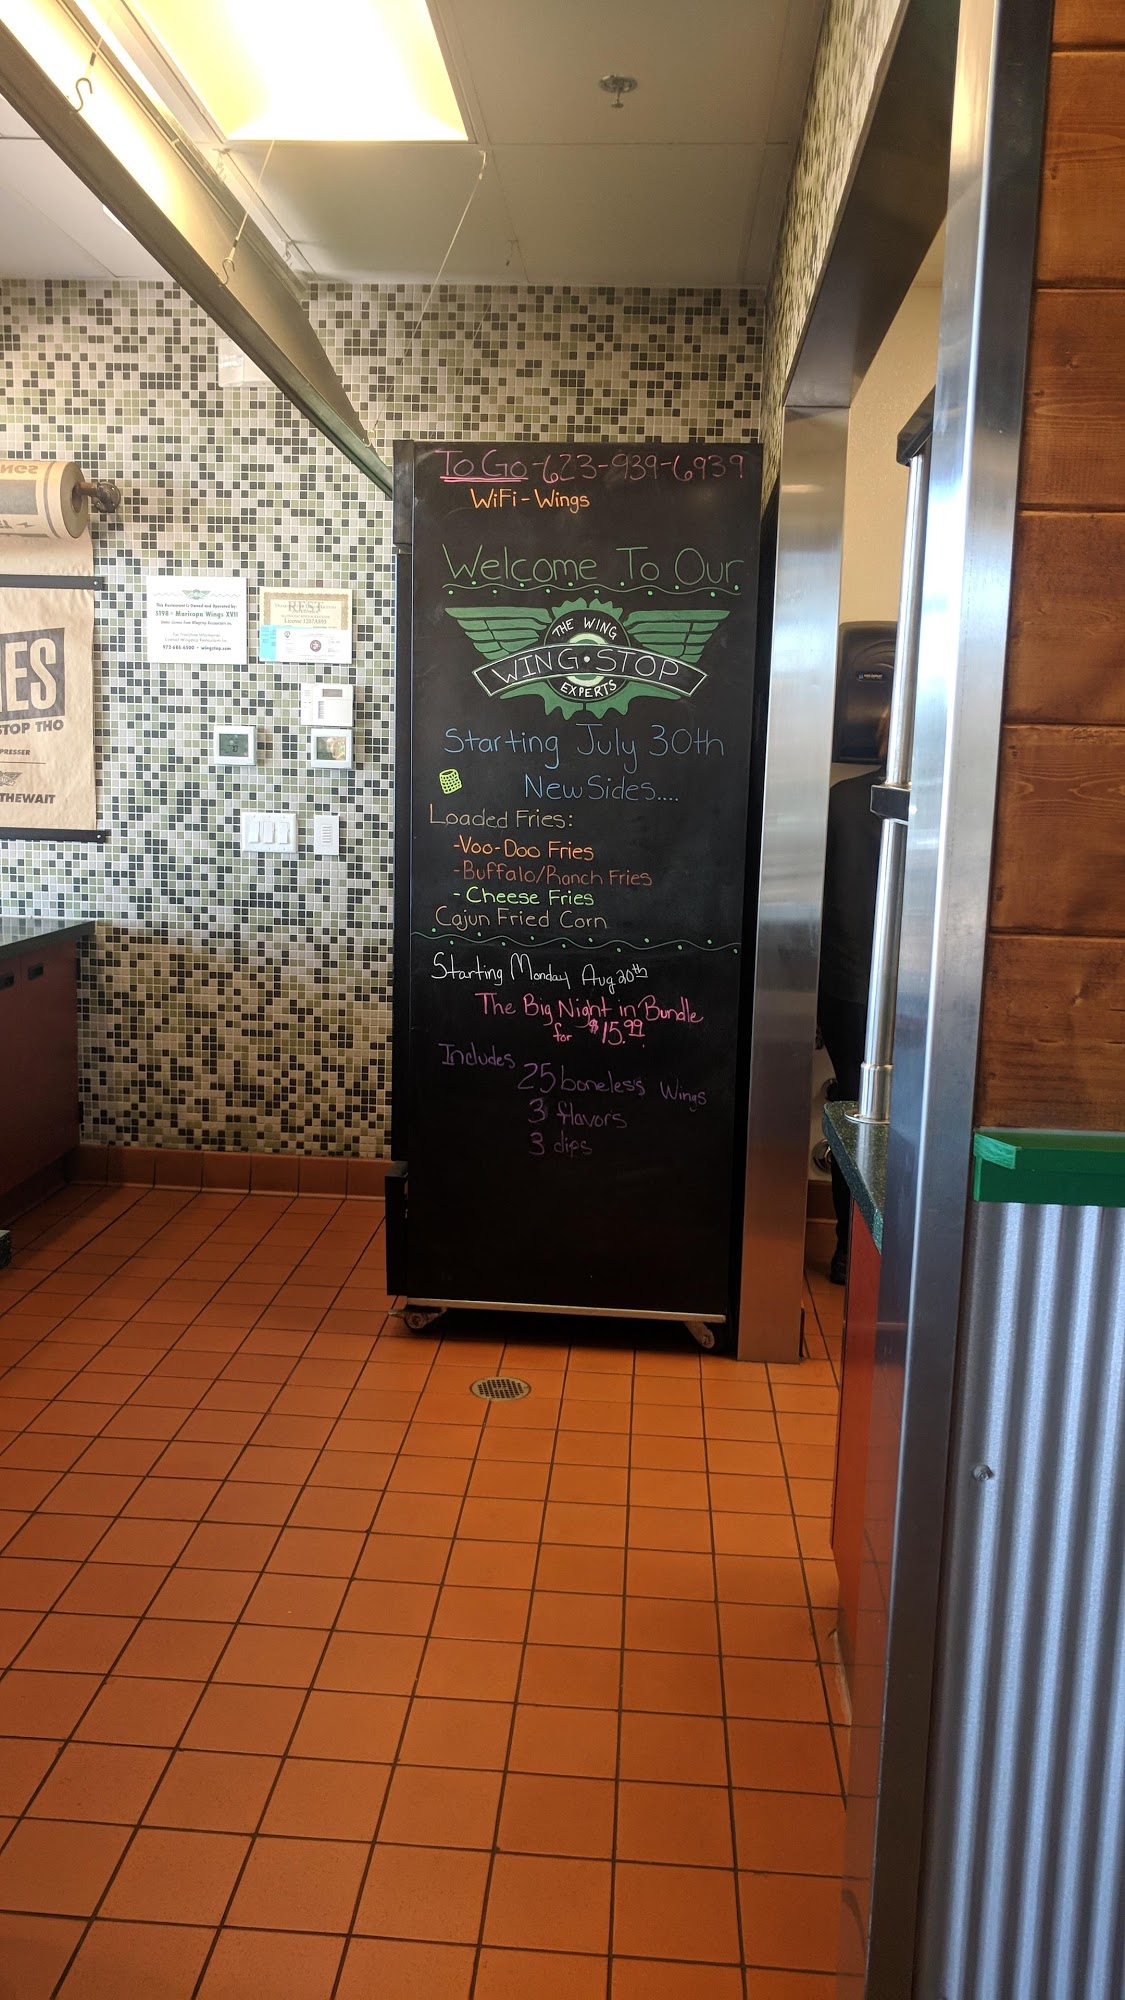 To Go-623-939-6939
WiFi-Wings
Welcome To Our
THE WING
WING·STOP
EXPERTS
Starting July 30th
New Sides....
Loaded Fries:
-Voo-Doo Fries
-Buffalo/Ranch Fries
-Cheese Fries
Cajun Fried Corn
Starting Monday Aug 20th
The Big Night in Bundle
for $15.99
Includes
25 boneless Wings
3 flavors
3 dips
This Restaurant is Owned and Operated by:
Maricopa Wings XVII
972-686-6500 • wingstop.com
REST
NGS
IES
STOP THO
PRESSER
THEWAIT